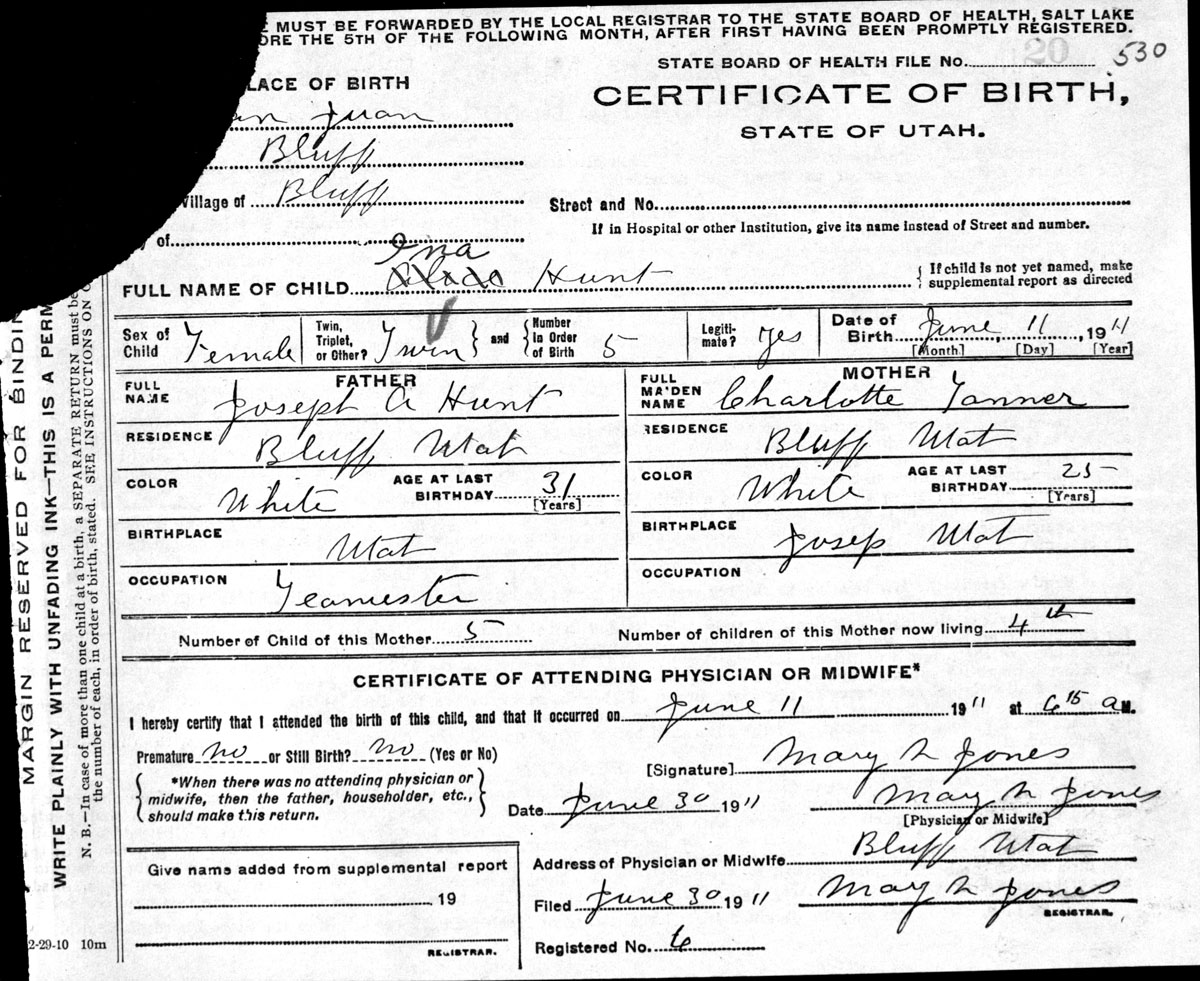 E MUST BE FORWARDED BY THE LOCAL REGISTRAR TO THE STATE BOARD OF HEALTH, SALT LAKE
ORE THE 5TH OF THE FOLLOWING MONTH, AFTER FIRST HAVING BEEN PROMPTLY REGISTERED.
20
STATE BOARD OF HEALTH FILE No. 530
LACE OF BIRTH
CERTIFICATE OF BIRTH,
STATE OF UTAH.
an Juan
Bluff
Village of Bluff
Street and No.
If in Hospital or other Institution, give its name instead of Street and number.
y of
Ina
FULL NAME OF CHILD Hunt { If child is not yet named, make supplemental report as directed
Sex of Child Female Twin, Triplet, or Other? Twin } and { Number in Order of Birth 5 Legiti-mate? Yes Date of Birth June 11, 1911
[Month] [Day] [Year]
FATHER
FULL NAME Joseph A Hunt
RESIDENCE Bluff Utat
COLOR White AGE AT LAST BIRTHDAY 31 [Years]
BIRTHPLACE Utat
OCCUPATION Teamester
MOTHER
FULL MAIDEN NAME Charlotte Tanner
RESIDENCE Bluff Utat
COLOR White AGE AT LAST BIRTHDAY 25 [Years]
BIRTHPLACE Josep Utat
OCCUPATION
Number of Child of this Mother 5 Number of children of this Mother now living 4th
CERTIFICATE OF ATTENDING PHYSICIAN OR MIDWIFE*
I hereby certify that I attended the birth of this child, and that it occurred on June 11 1911 at 6 15 a M.
Premature no or Still Birth? no (Yes or No)
{ *When there was no attending physician or midwife, then the father, householder, etc., should make this return. }
[Signature] Mary N Jones
Date June 30 1911 Mary N Jones
[Physician or Midwife]
Address of Physician or Midwife Bluff Utat
Filed June 30 1911 Mary N Jones
REGISTRAR.
Registered No. 6
Give name added from supplemental report
19
REGISTRAR.
2-29-10 10m
MARGIN RESERVED FOR BINDIN
WRITE PLAINLY WITH UNFADING INK—THIS IS A PERM
N. B.—In case of more than one child at a birth, a SEPARATE RETURN must be
the number of each, in order of birth, stated. SEE INSTRUCTIONS ON